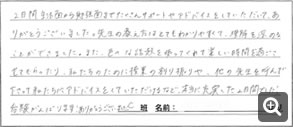 2日間主体面から財体面までたくさんサポートやアドバイスをしていただいて、あ
りがとうございました。先生の教え方はとてもわかりやすくて、理解を深める
ことができました。また、色々な話題を振ってくれて楽しい時間を過ごす
ことができました。私たちのために授業の割り振りや、他の先生を呼んで
きて私たちにアドバイスをしていただけるなど、本当に充実した2日間でした。
受験がんばります。ありがとうございました
班 名前: